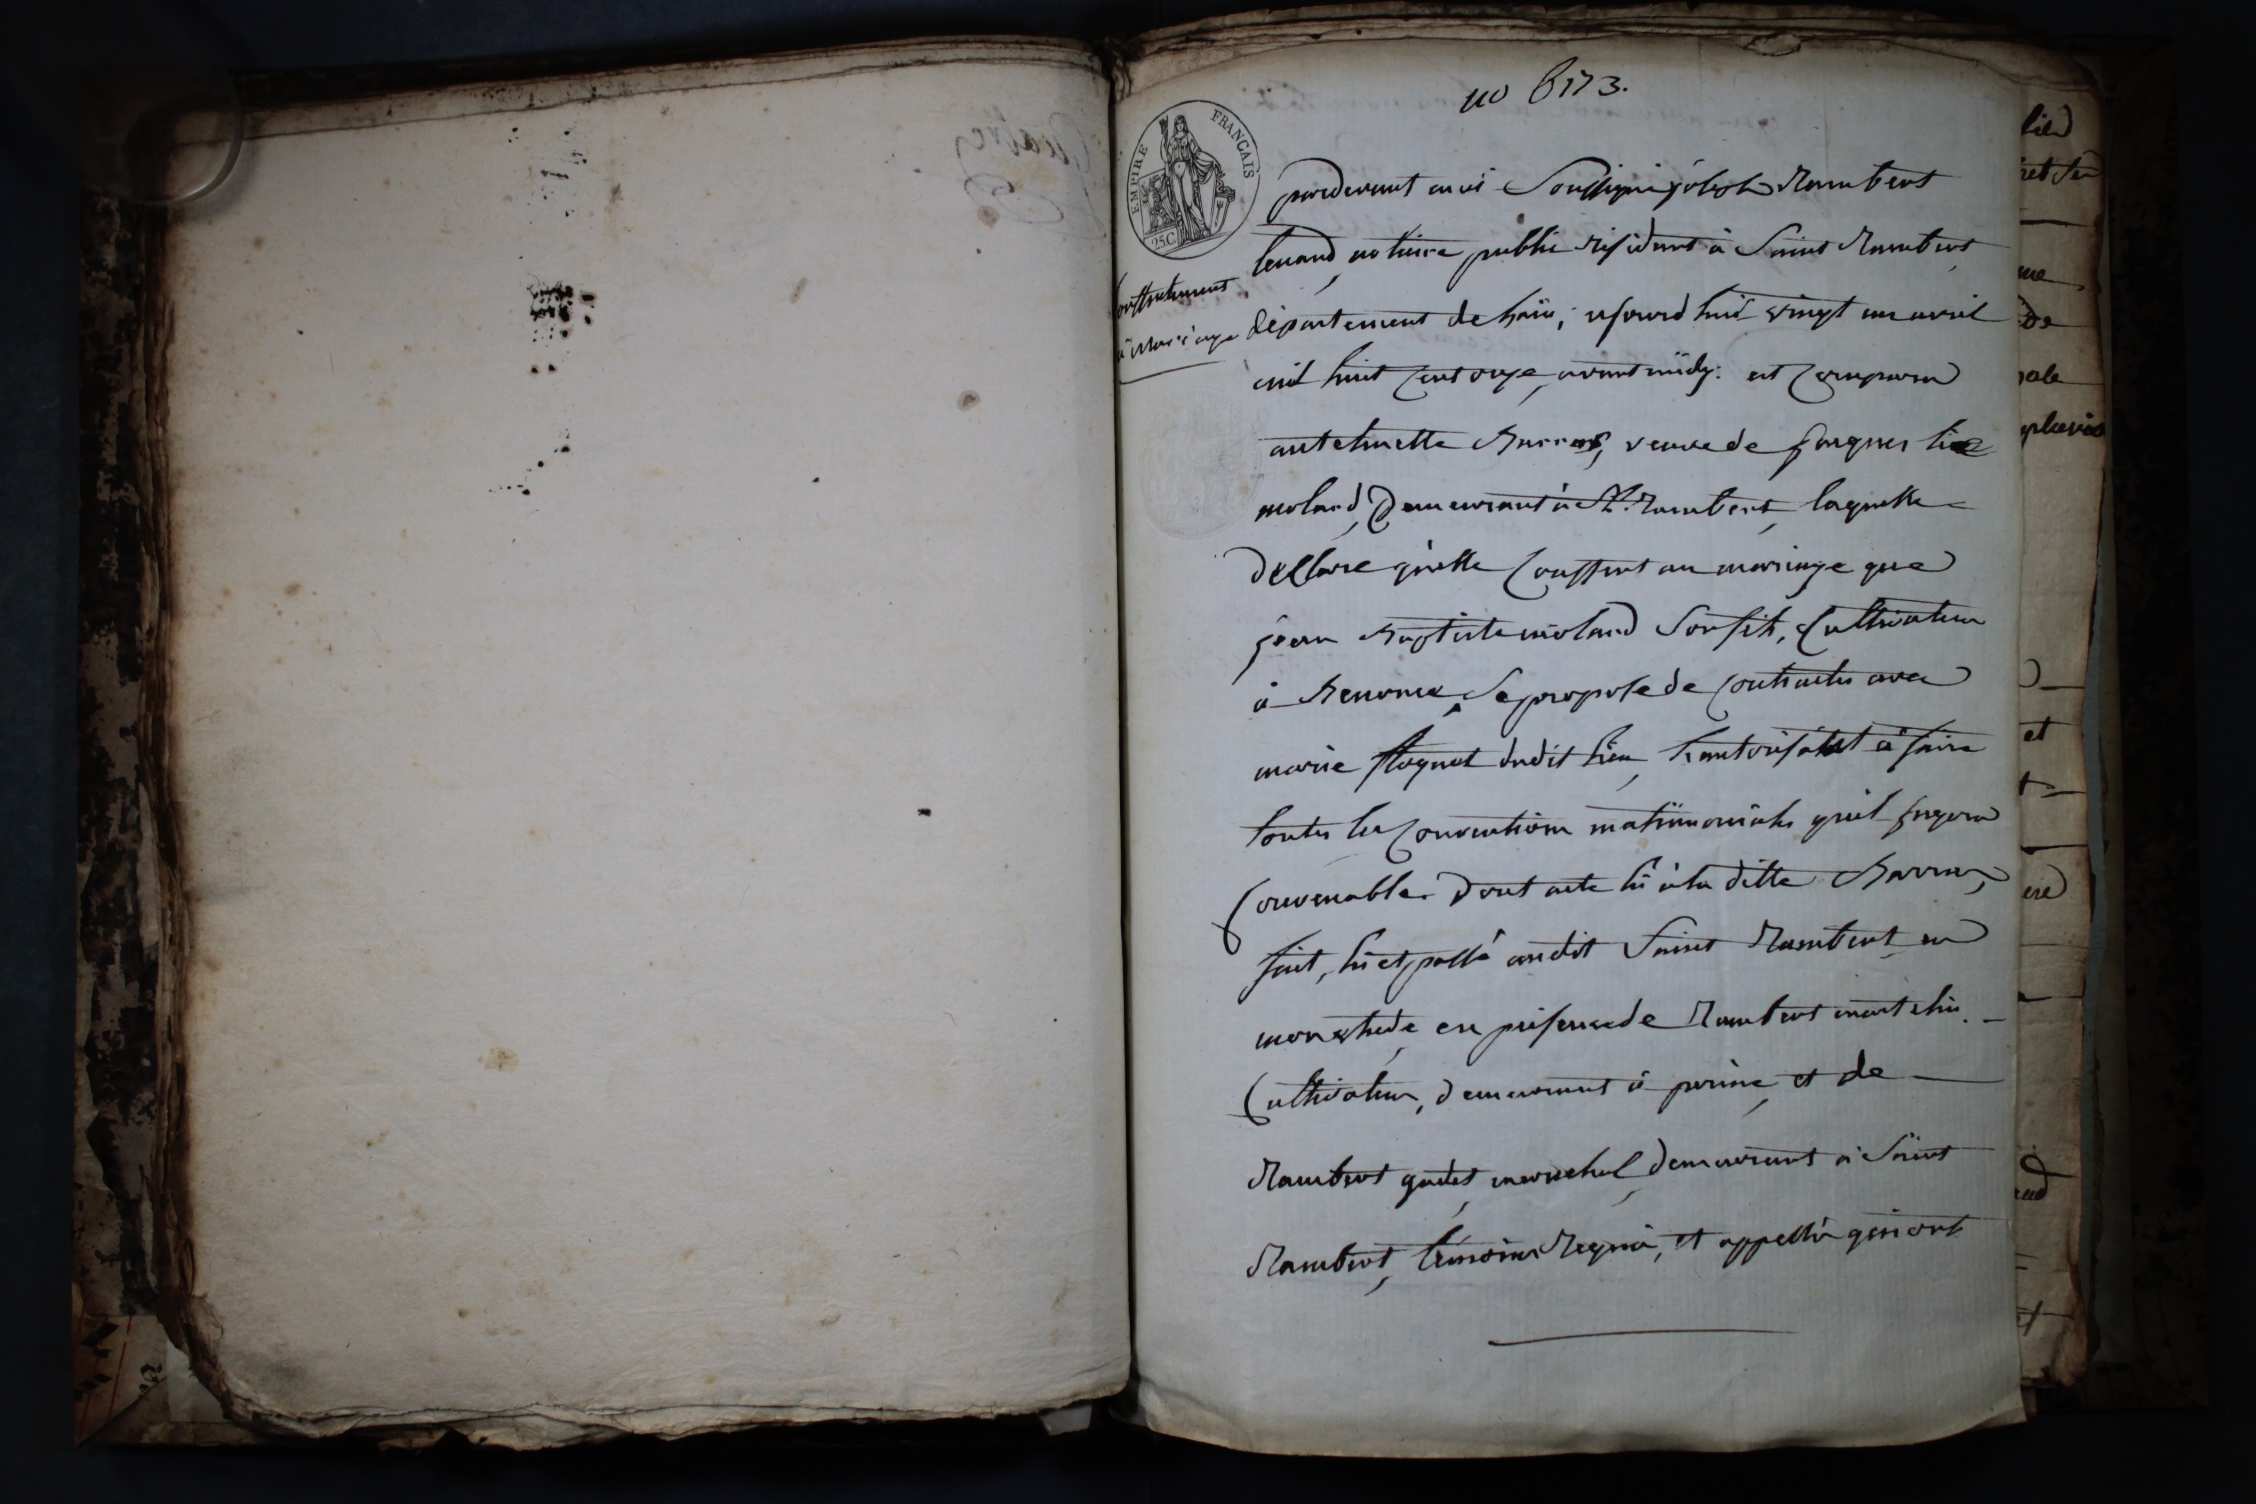 no 6173.
EMPIRE FRANÇAIS
25C.
pardevant moi soussigné joseph Rambert
levand, notaire public residant à Saint Rambert,
Consentement
à Mariage
département de hain; ajourd'hui vingt un avril
mil huit cent onze, avant midy: est comparu
anthelmette Barraz, veuve de jacques
molard, demeurant à St. Rambert, laquelle
déclare qu'elle consent au mariage que
jean Baptiste molard son fils, cultivateur
à Benonce, se propose de contracter avec
marie dudit lieu, l'autorisant à faire
toutes les conventions matrimoniales qu'il jugera
convenables. Dont acte lû à la ditte Barraz,
fait, lû et passé audit Saint Rambert en
mon etude, en présence de Rambert martelin
cultivateur, demeurant à et de
Rambert gudet, marechal, demeurant à Saint
Rambert, témoins requis, et appellés qui ont